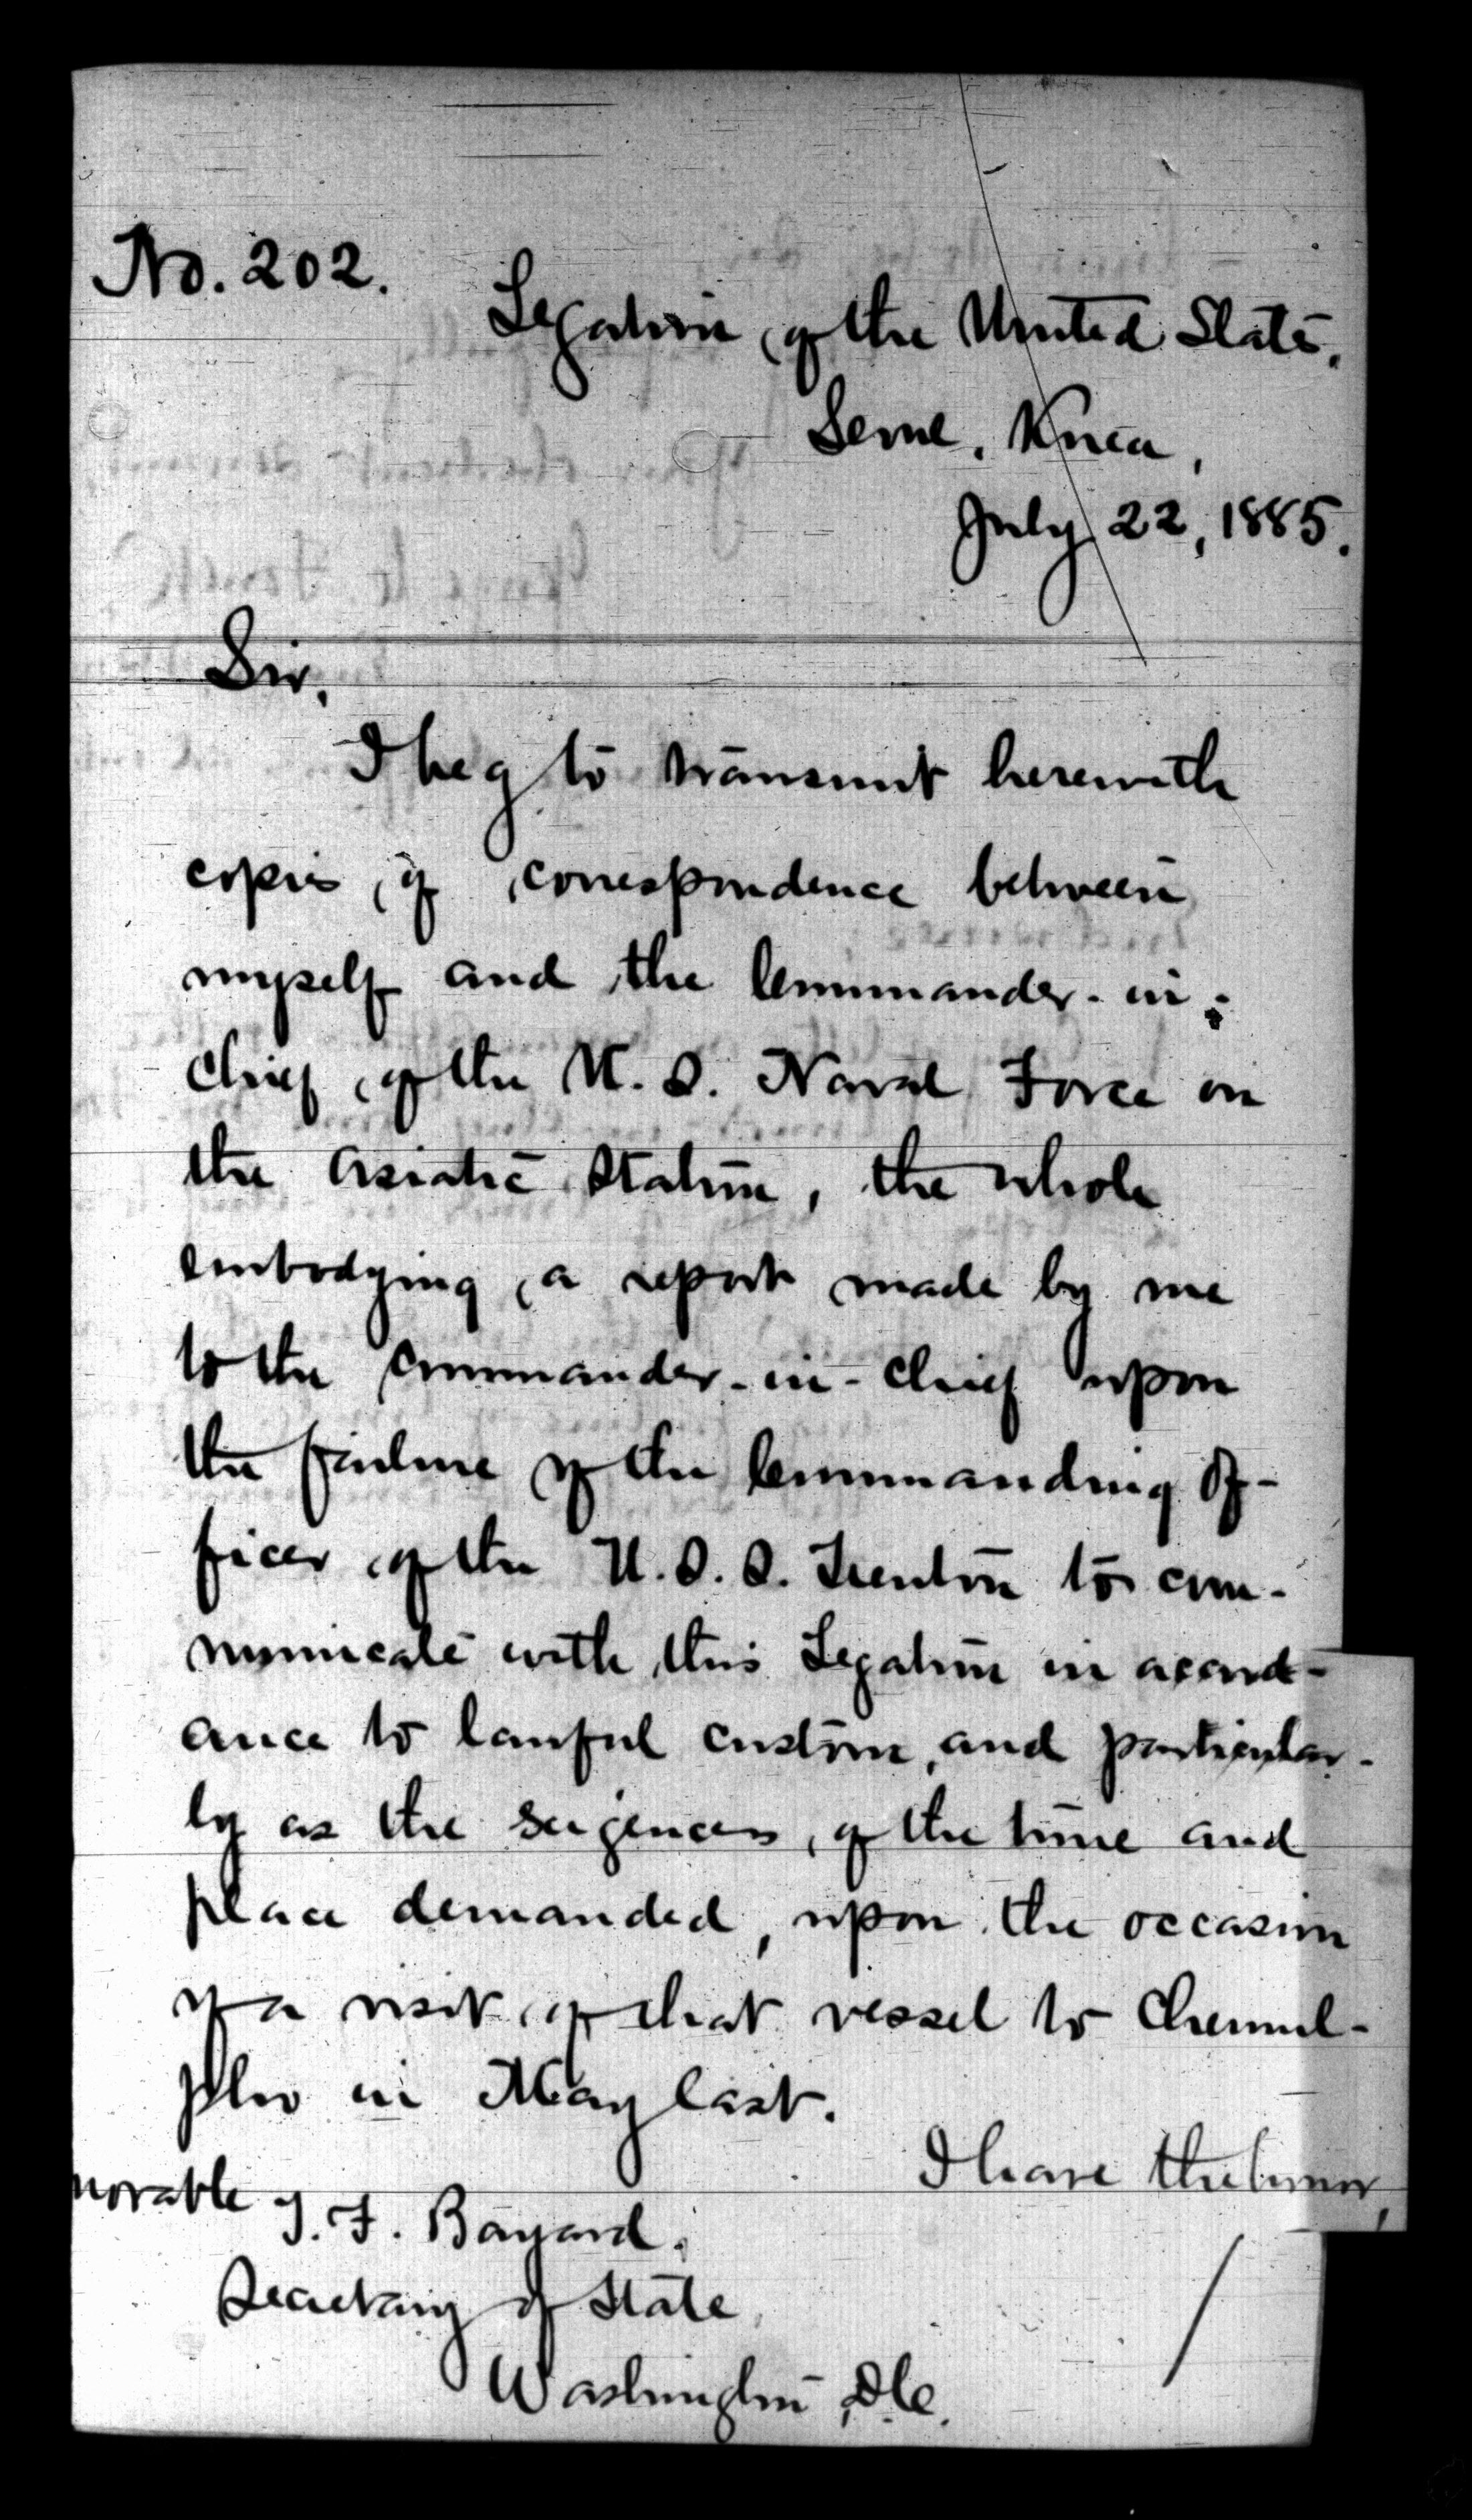 No. 202.
Legation of the United States.
Seoul, Korea,
July 22, 1885.
Sir,
I beg to transmit herewith
copies of correspondence between
myself and the Commander-in-
Chief of the U.S. Naval Force on
the Asiatic Station, the whole
embodying a report made by me
to the Commander-in-Chief upon
the failure of the Commanding Of-
ficer of the U.S.S. Trenton to com-
municate with this Legation in accord-
ance to lawful custom, and particular-
ly as the exigences of the time and
place demanded, upon the occasion
of a visit of that vessel to Chemul-
pho in May last.
I have the honor,
norable T. F. Bayard,
Secretary of State,
Washington, D.C.